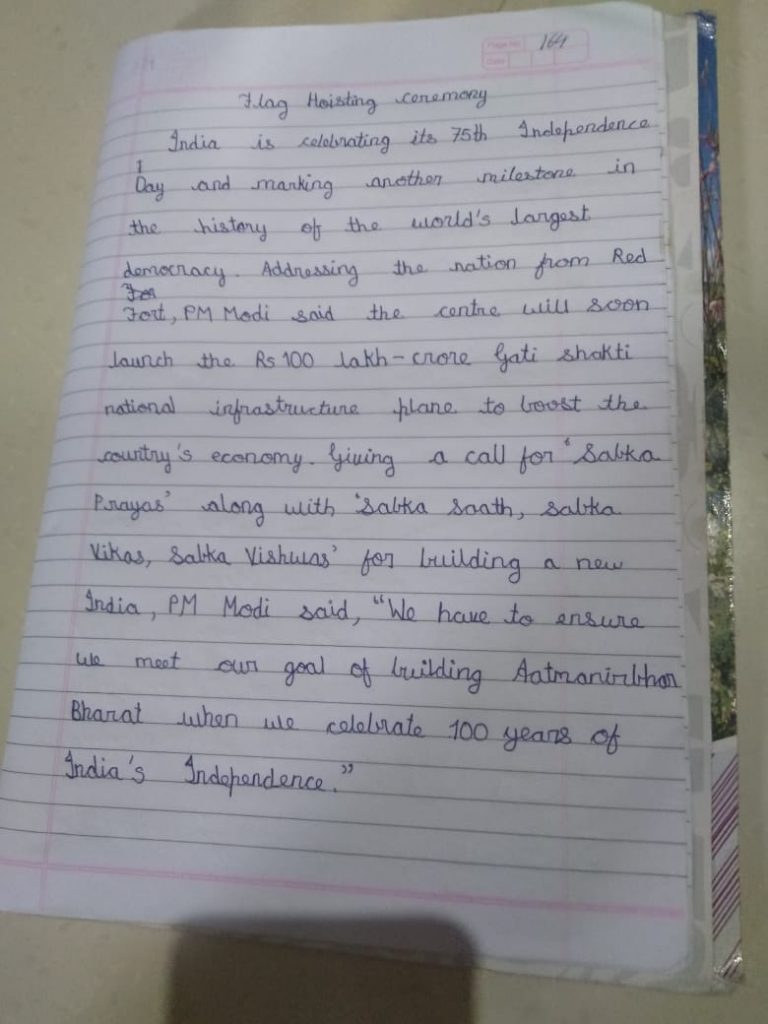 Page No. 164
Date
Flag Hoisting ceremony
India is celebrating its 75th Independence
Day and marking another milestone in
the history of the world's largest
democracy. Addressing the nation from Red
Fort, PM Modi said the centre will soon
launch the Rs 100 lakh-crore Gati shakti
national infrastructure plane to boost the
country's economy. Giving a call for 'Sabka
Prayas' along with 'Sabka Saath, Sabka
Vikas, Sabka Vishwas' for building a new
India, PM Modi said, "We have to ensure
we meet our goal of building Aatmanirbhar
Bharat when we celebrate 100 years of
India's Independence."